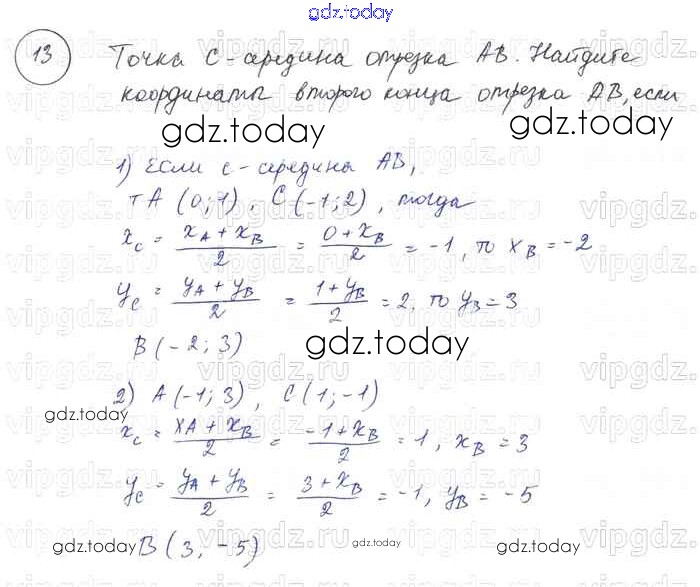 gdz.today
13 Точка С - середина отрезка АВ. Найдите
координаты второго конца отрезка АВ, если
gdz.today gdz.today
1) Если с - середина АВ,
т А (0; 1), С (-1; 2), тогда
x_C = (x_A + x_B)/2 = (0 + x_B)/2 = -1, то x_B = -2
y_C = (y_A + y_B)/2 = (1 + y_B)/2 = 2, то y_B = 3
В (-2; 3)
gdz.today
2) А (-1; 3), С (1; -1)
gdz.today
x_C = (xA + x_B)/2 = (-1 + x_B)/2 = 1, x_B = 3
y_C = (y_A + y_B)/2 = (3 + x_B)/2 = -1, y_B = -5
gdz.today В (3; -5) gdz.today gdz.today